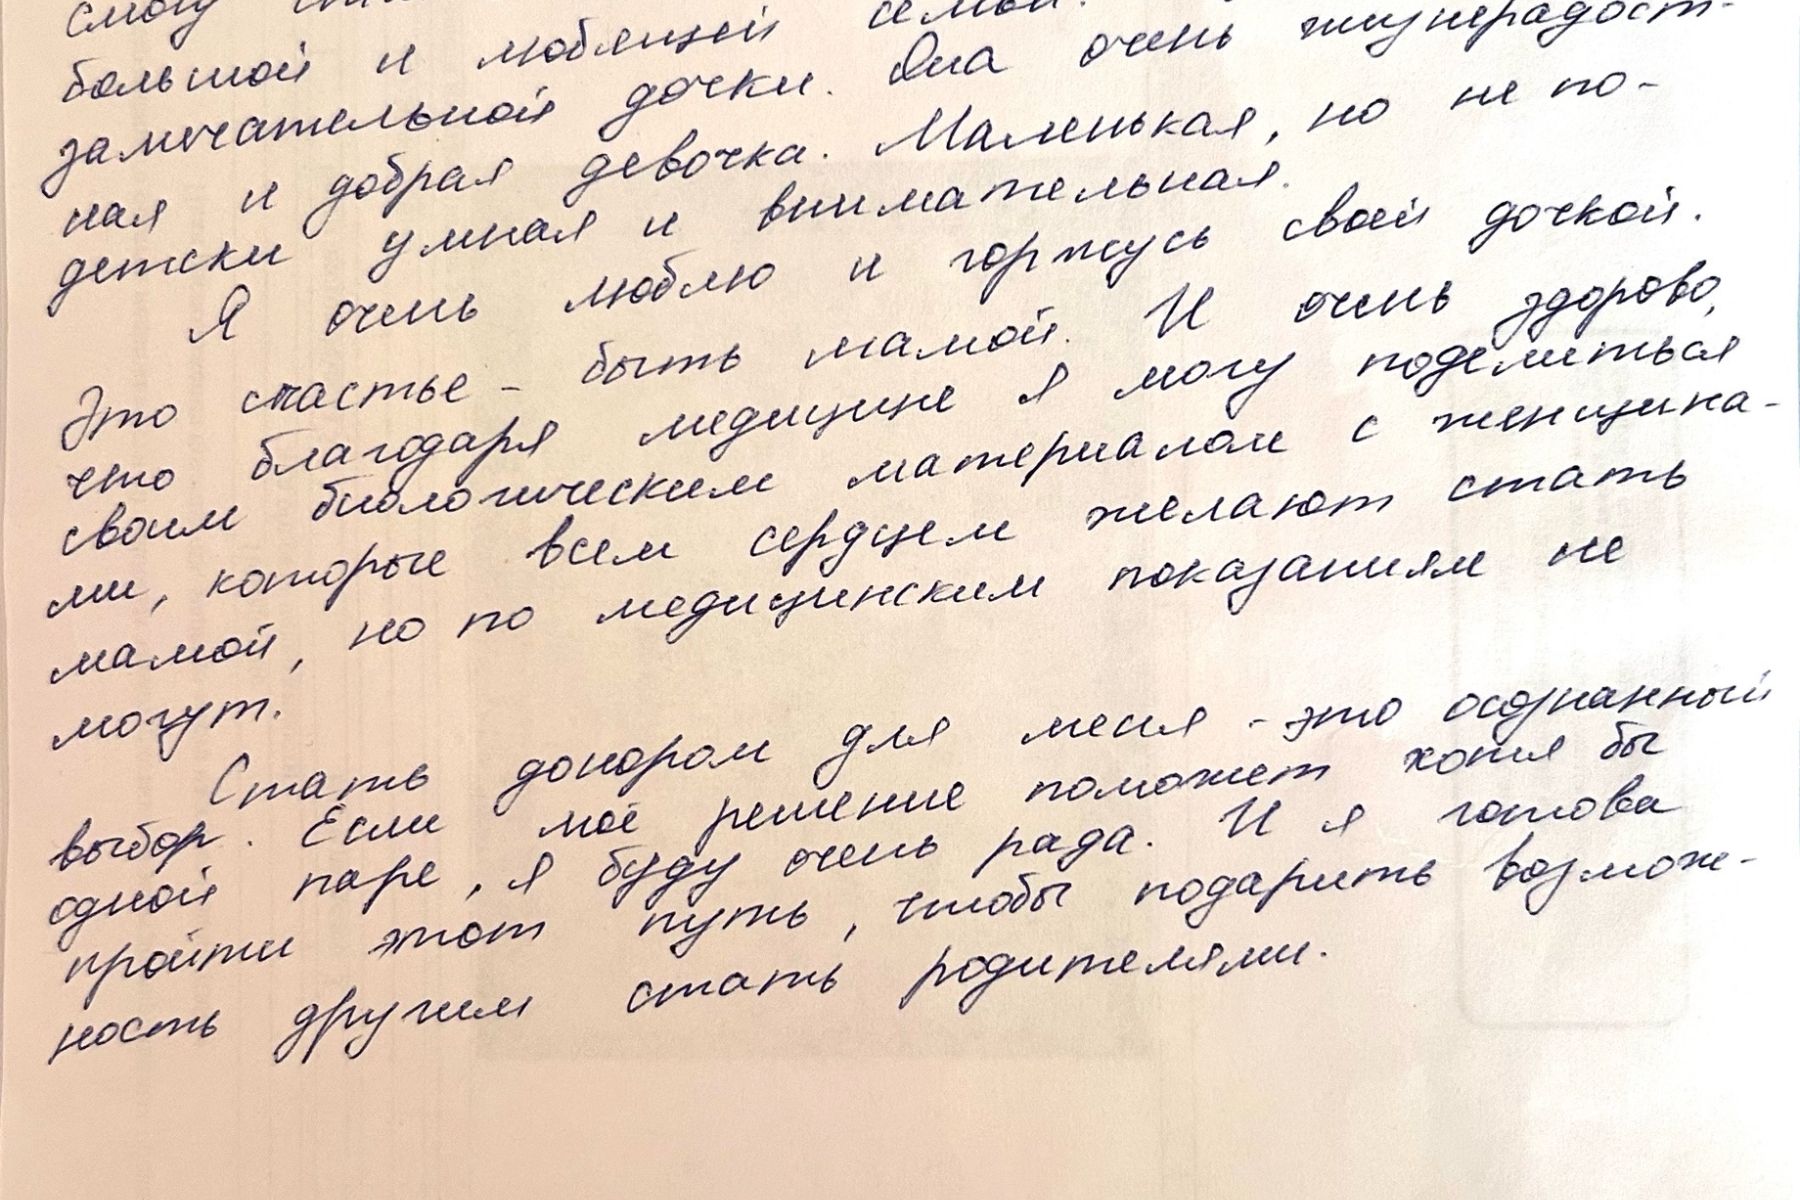 смогу
большой и любящей семьи.
замечательной дочки. Она очень жизнерадост-
ная и добрая девочка. Маленькая, но не по-
детски умная и внимательная.
Я очень люблю и горжусь своей дочкой.
Это счастье - быть мамой. И очень здорово,
что благодаря медицине я могу поделиться
своим биологическим материалом с женщина-
ми, которые всем сердцем желают стать
мамой, но по медицинским показаниям не
могут.
Стать донором для меня - это осознанный
выбор. Если моё решение поможет хотя бы
одной паре, я буду очень рада. И я готова
пройти этот путь, чтобы подарить возмож-
ность другим стать родителями.